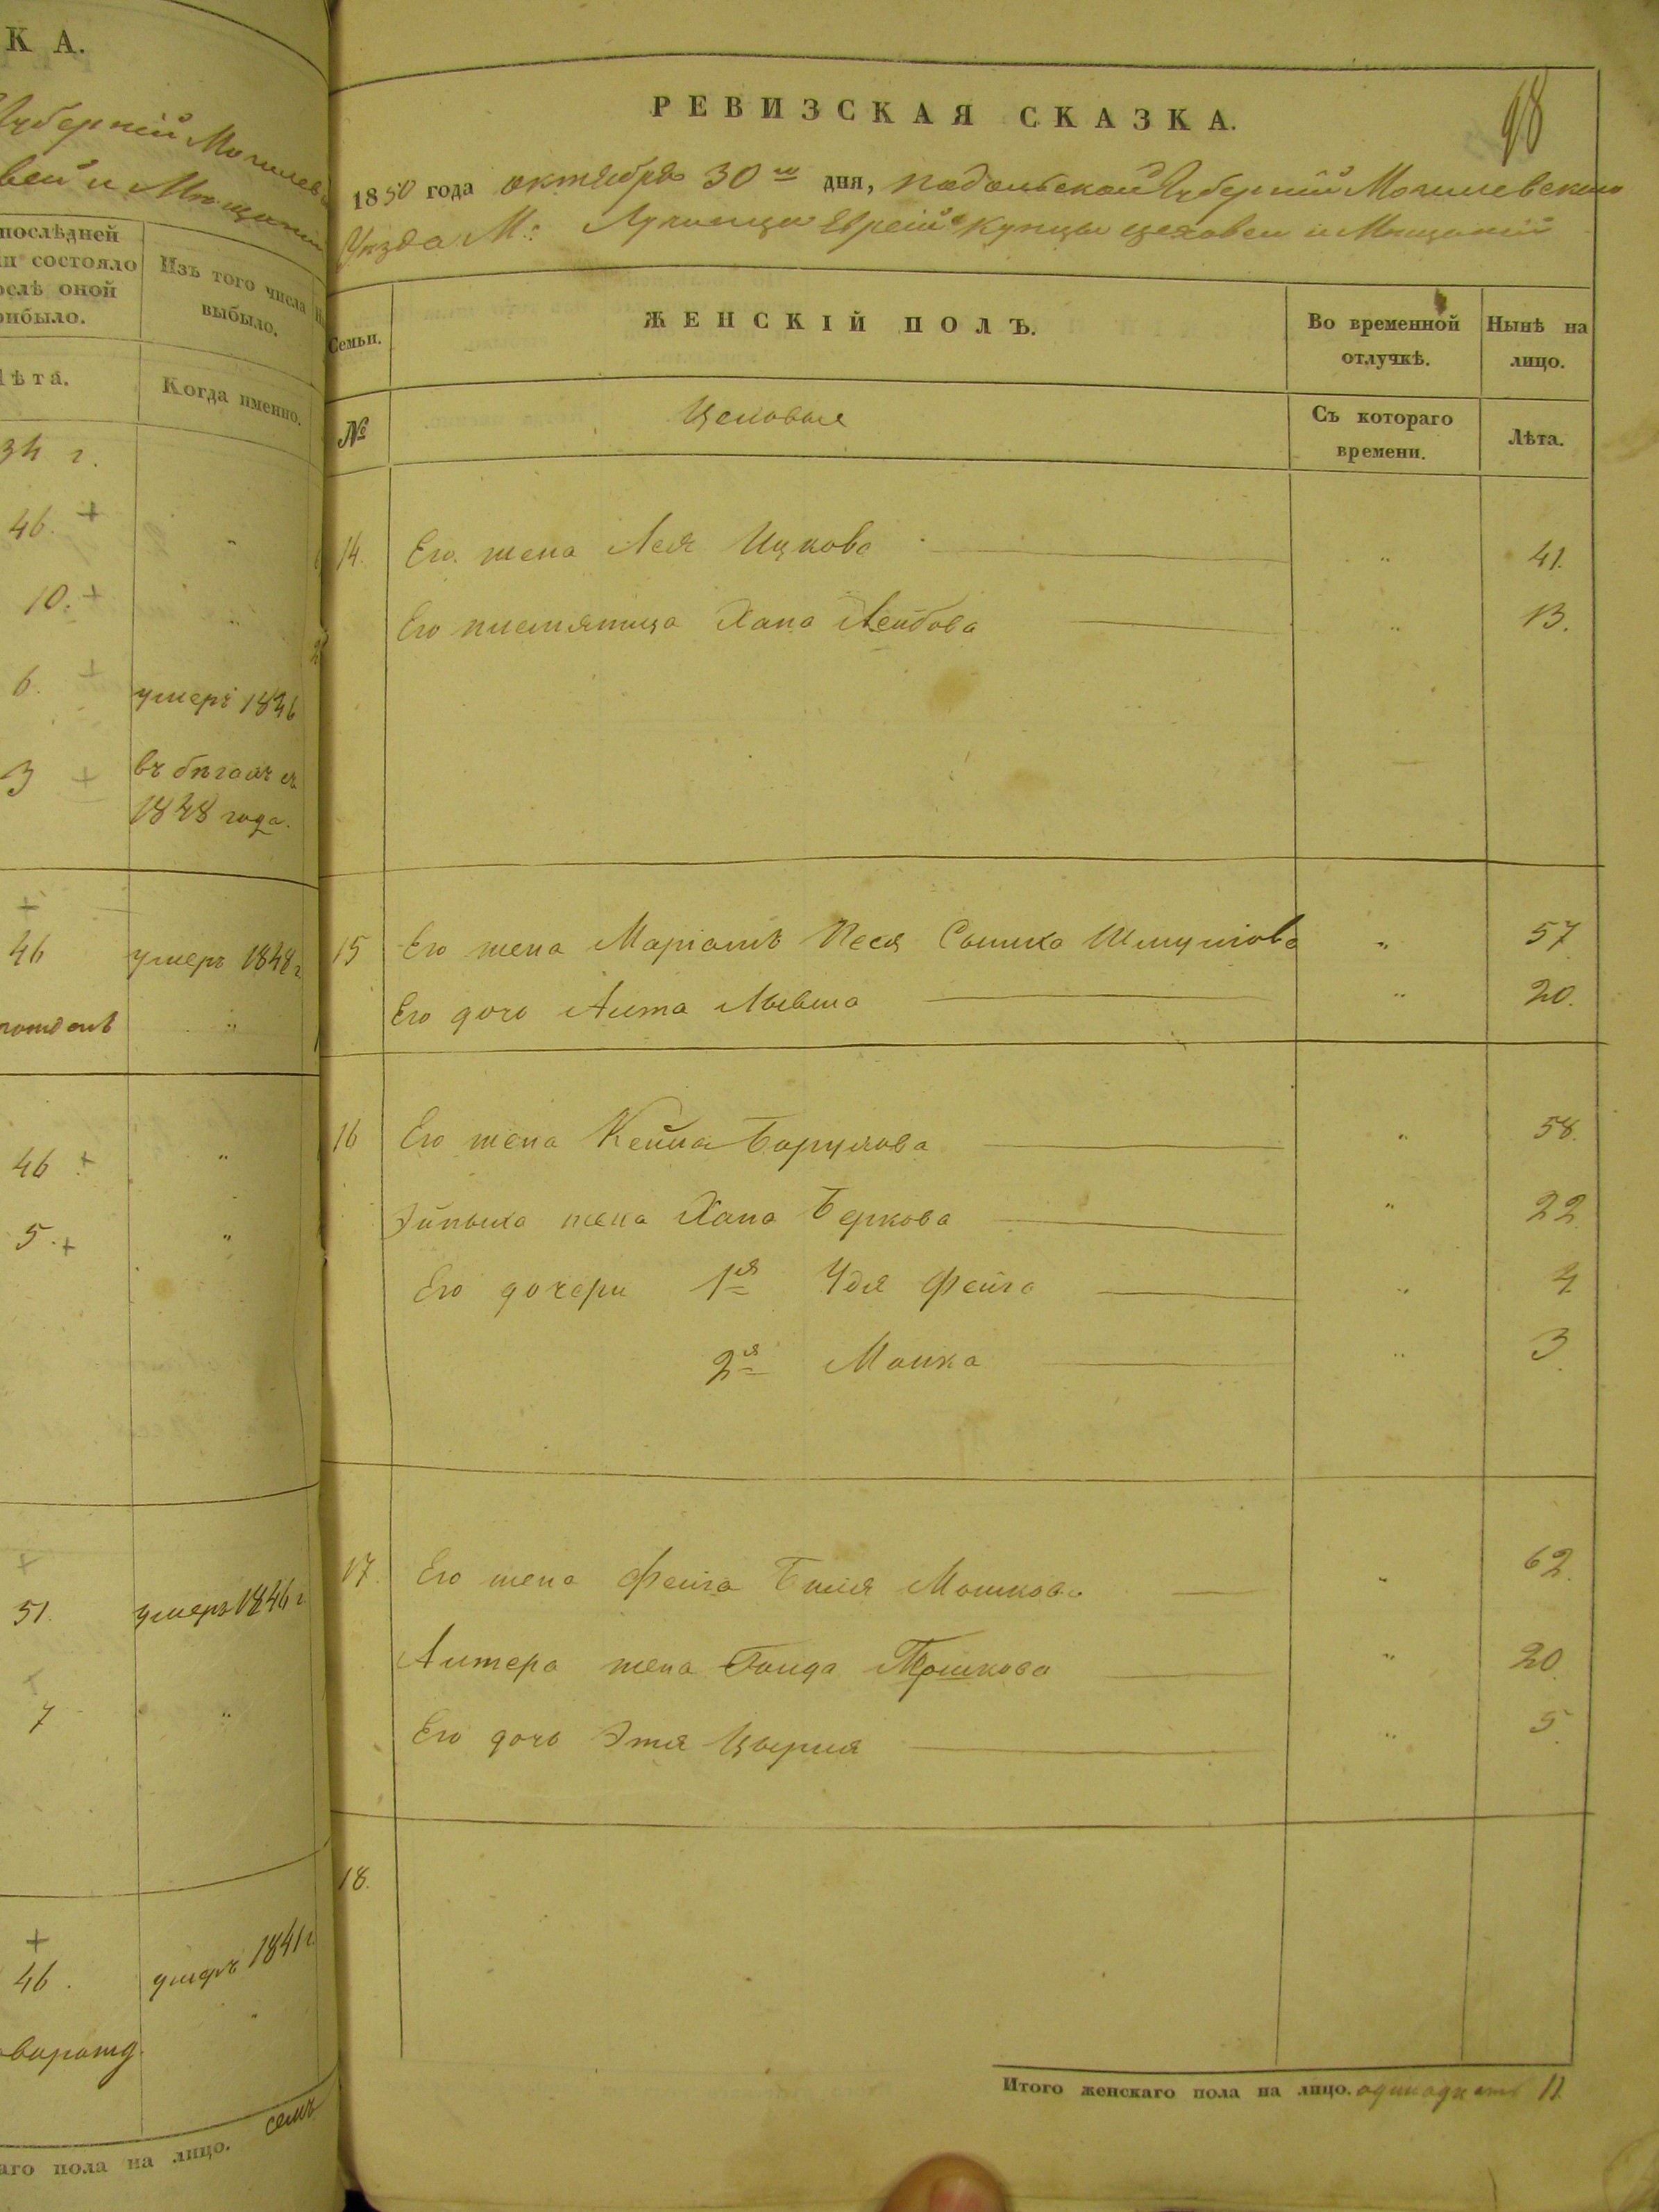 К А.
Губерніи Могилев
вей и Мѣщаній
послѣдней
состояло
послѣ оной
прибыло.
Изъ того числа
выбыло.
Лѣта.
Когда именно.
34 г.
46. +
10. +
6. + умеръ 1846
3 + въ бѣгахъ съ
1848 года.
+
46 умеръ 1848 г
46 +
5. +
+
51. умеръ 1846 г.
+
7
+
46. умеръ 1841 г.
аго пола на лицо. семь
98
РЕВИЗСКАЯ СКАЗКА.
1850 года октября 30го дня, Подольской Губерніи Могилевскаго
Уѣзда М: Лучинца Еврей Купцы цеховеи и Мѣщаній
Семьи. ЖЕНСКІЙ ПОЛЪ. Во временной отлучкѣ. Нынѣ на лицо.
№ Цеховые Съ котораго времени. Лѣта.
14. Его жена Лея Ицкова " 41.
Его племяница Хана Лейбова " 13.
15 Его жена Маріамъ Песя Сышка Шмулiова " 57
Его дочь Лита Малвина " 20.
16 Его жена Кейла Борухова " 58.
жена Хана Беркова " 22
Его дочери 1я Удя Фейга " 4
2я Малка " 3
17. Его жена Фейга Биля Мошкова " 62.
Алтера жена Голда Мошкова " 20.
Его дочь Этя Цырля " 5
18.
Итого женскаго пола на лицо. одинадцать 11.